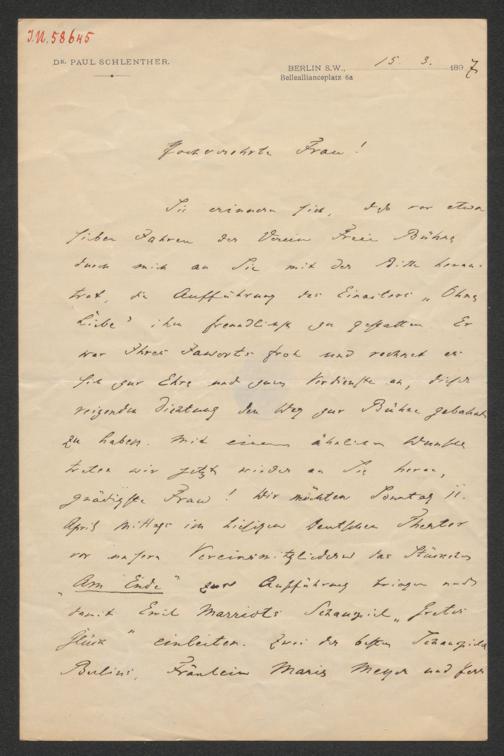 I.N. 58645
DR. PAUL SCHLENTHER.
BERLIN S.W., 15. 3. 1897
Belleallianceplatz 6a
Hochverehrte Frau!
Sie erinnern sich, daß vor etwa
sieben Jahren der Verein Freie Bühne
durch mich an Sie mit der Bitte heran-
trat, die Aufführung des Einakters „Ohne
Liebe" ihm freundlichst zu gestatten. Er
war Ihres Jaworts froh und rechnet es
sich zur Ehre und zum Verdienste an, dieser
reizenden Dichtung den Weg zur Bühne gebahnt
zu haben. Mit einem ähnlichen Wunsche
treten wir jetzt wieder an Sie heran,
gnädigste Frau! Wir möchten Sonntag 11.
April Mittags im hiesigen Deutschen Theater
vor unsern Vereinsmitgliedern das Stückchen
„Am Ende" zur Aufführung bringen und
damit Emil Marriots Schauspiel „Gretes
Glück" einleiten. Zwei der besten Schauspieler
Berlins, Fräulein Maria Meyer und Herr